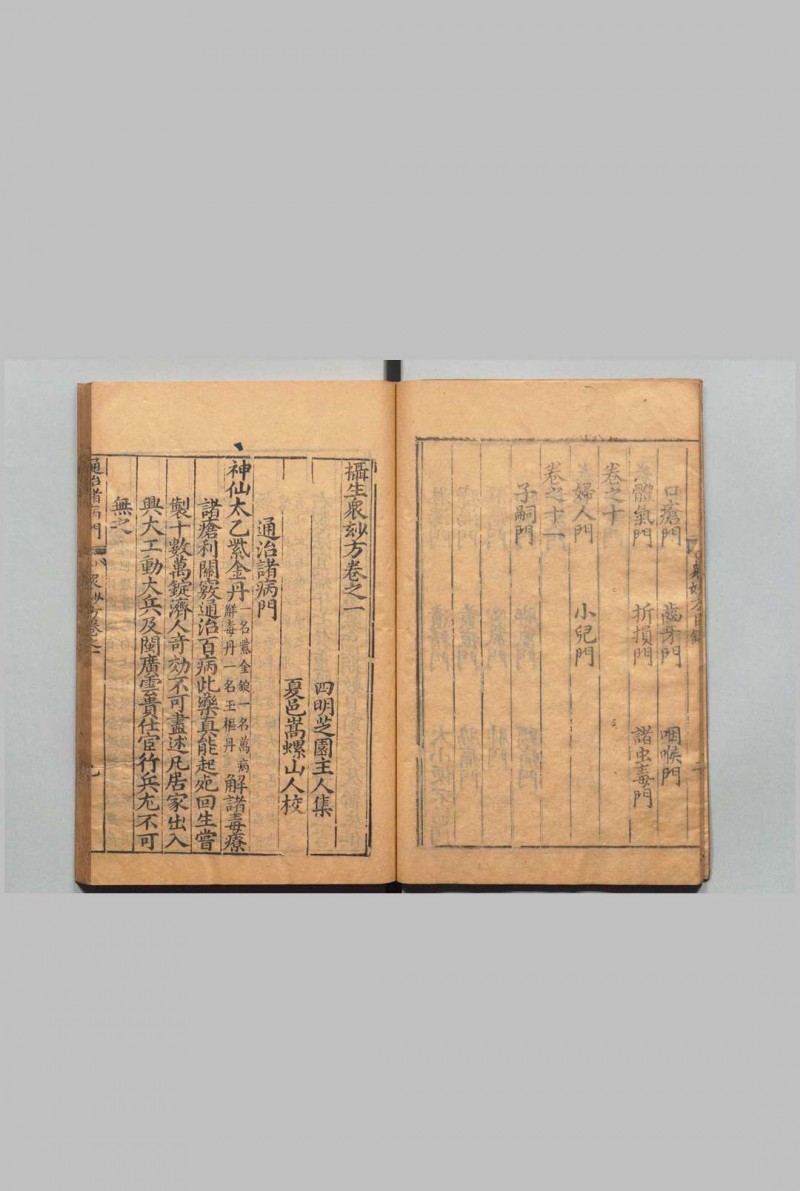 口瘡門 齒牙門 咽喉門
體氣門 折損門 諸虫毒門
卷之十
婦人門 小兒門
卷之十一
子嗣門
攝生衆玅方卷之一
四明芝園主人集
夏邑嵩螺山人校
通治諸病門
神仙太乙紫金丹一名紫金錠一名萬病解毒丹一名玉樞丹 解諸毒療
諸瘡利關竅通治百病此藥真能起死回生嘗
製十數萬錠濟人奇効不可盡述凡居家出入
興大工動大兵及閩廣雲貴仕宦行兵尤不可
無之
通治諸病門